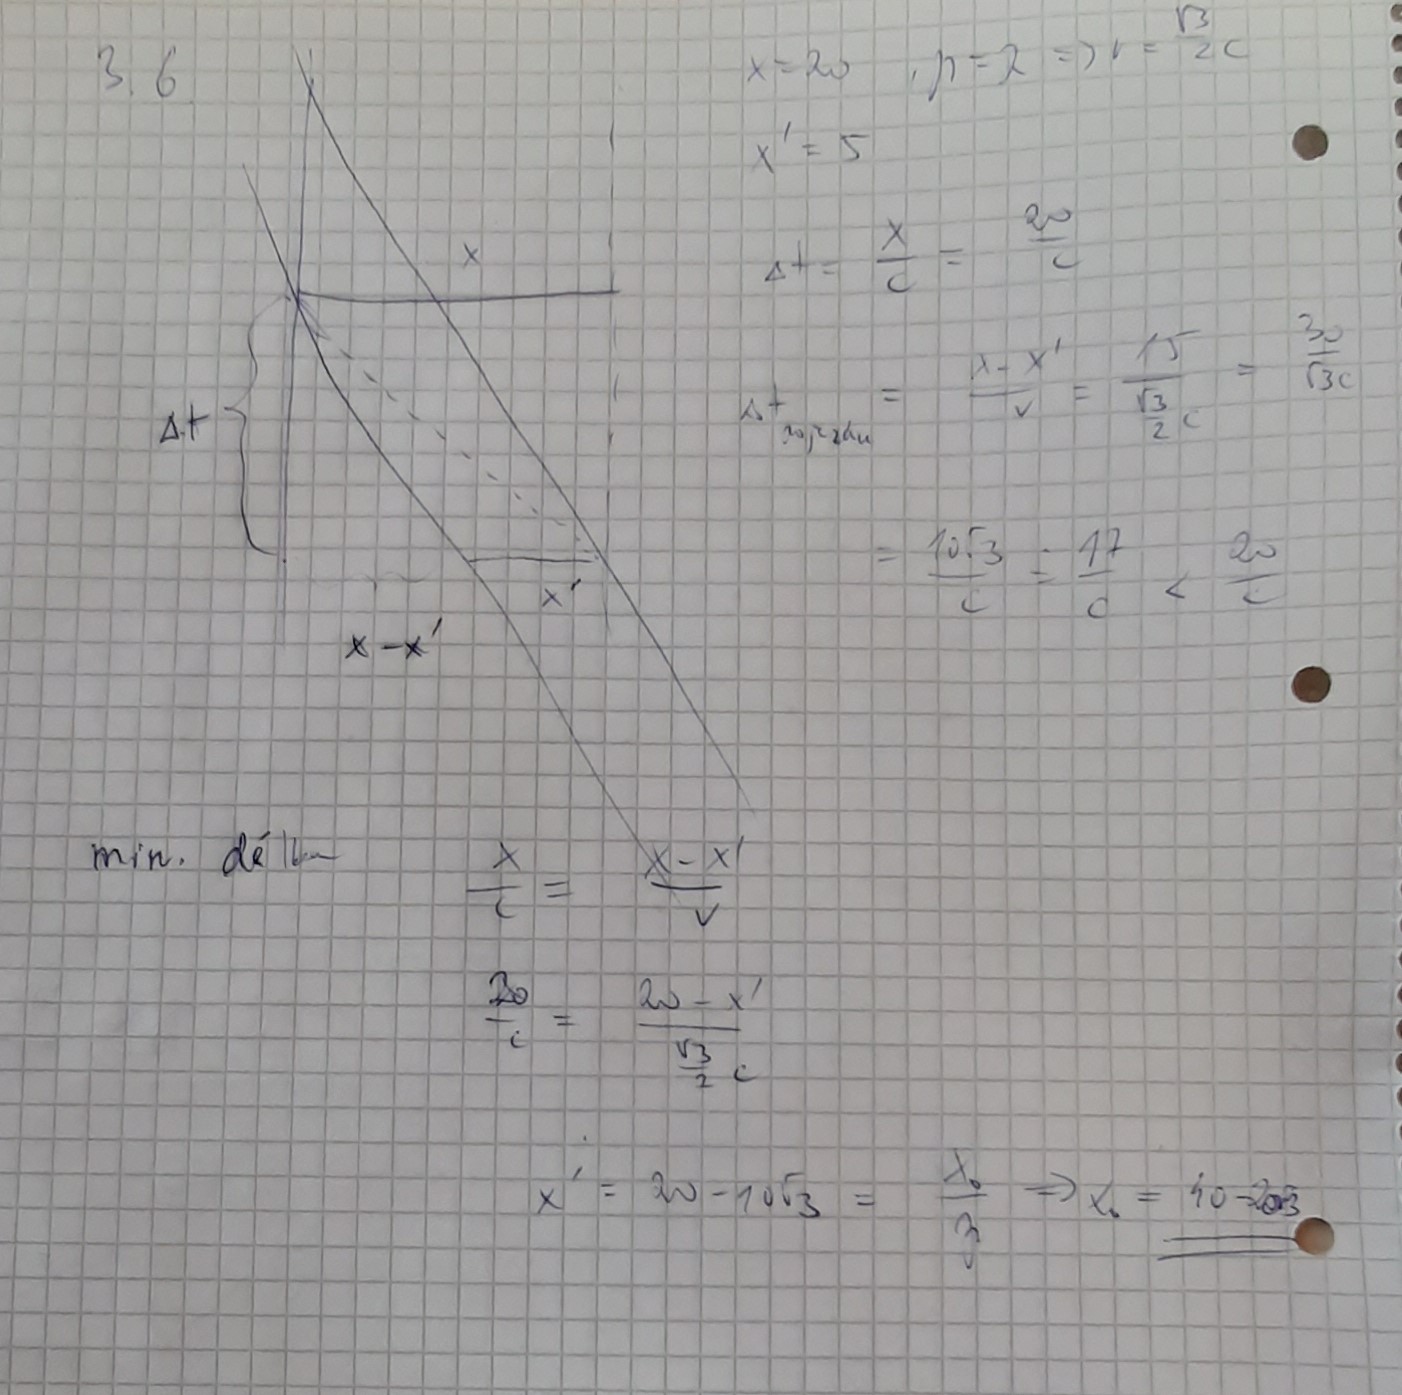 3.6
x = 20 , γ = 2 => v = √3/2 c
x' = 5
Δt = x/c = 20/c
Δt = (x - x')/v = 15/(√3/2 c) = 30/(√3c)
= 10√3/c = 17/c < 20/c
x
Δt
x'
x - x'
min. délka
x/c = (x - x')/v
20/c = (20 - x')/(√3/2 c)
x' = 20 - 10√3 = x₀/γ => x₀ = 40 - 20√3